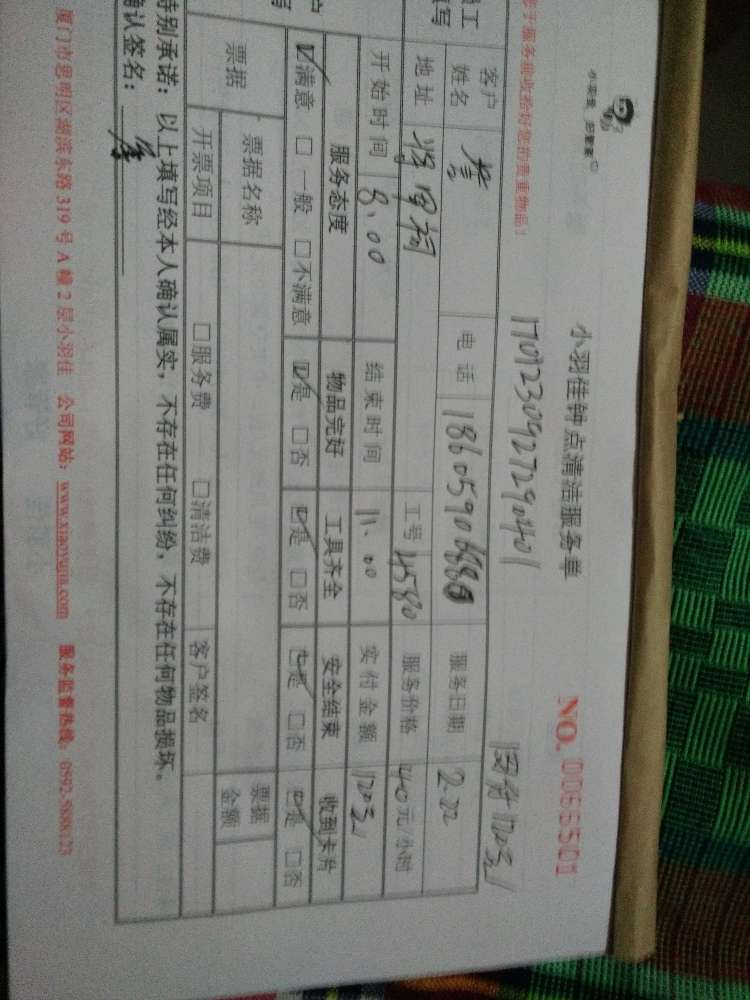 小羽佳 把管家
小羽佳钟点清洁服务单
NO. 0066501
1707230927290401
客户姓名 电话 服务日期 2.22
地址 工号 4580 服务价格 40元/小时
开始时间 8.00 结束时间 11.00 实付金额 120元
服务态度 物品完好 工具齐全 安全结束 收到卡片
☑满意 □一般 □不满意 ☑是 □否 ☑是 □否 ☑是 □否 ☑是 □否
票据 票据名称 票据金额
开票项目 □服务费 □清洁费 客户签名
特别承诺：以上填写经本人确认属实，不存在任何纠纷，不存在任何物品损坏。
确认签名：
厦门市思明区湖滨东路319号A幢2层小羽佳 公司网站：www.xiaoyujia.com 服务监督热线：0592-5888123